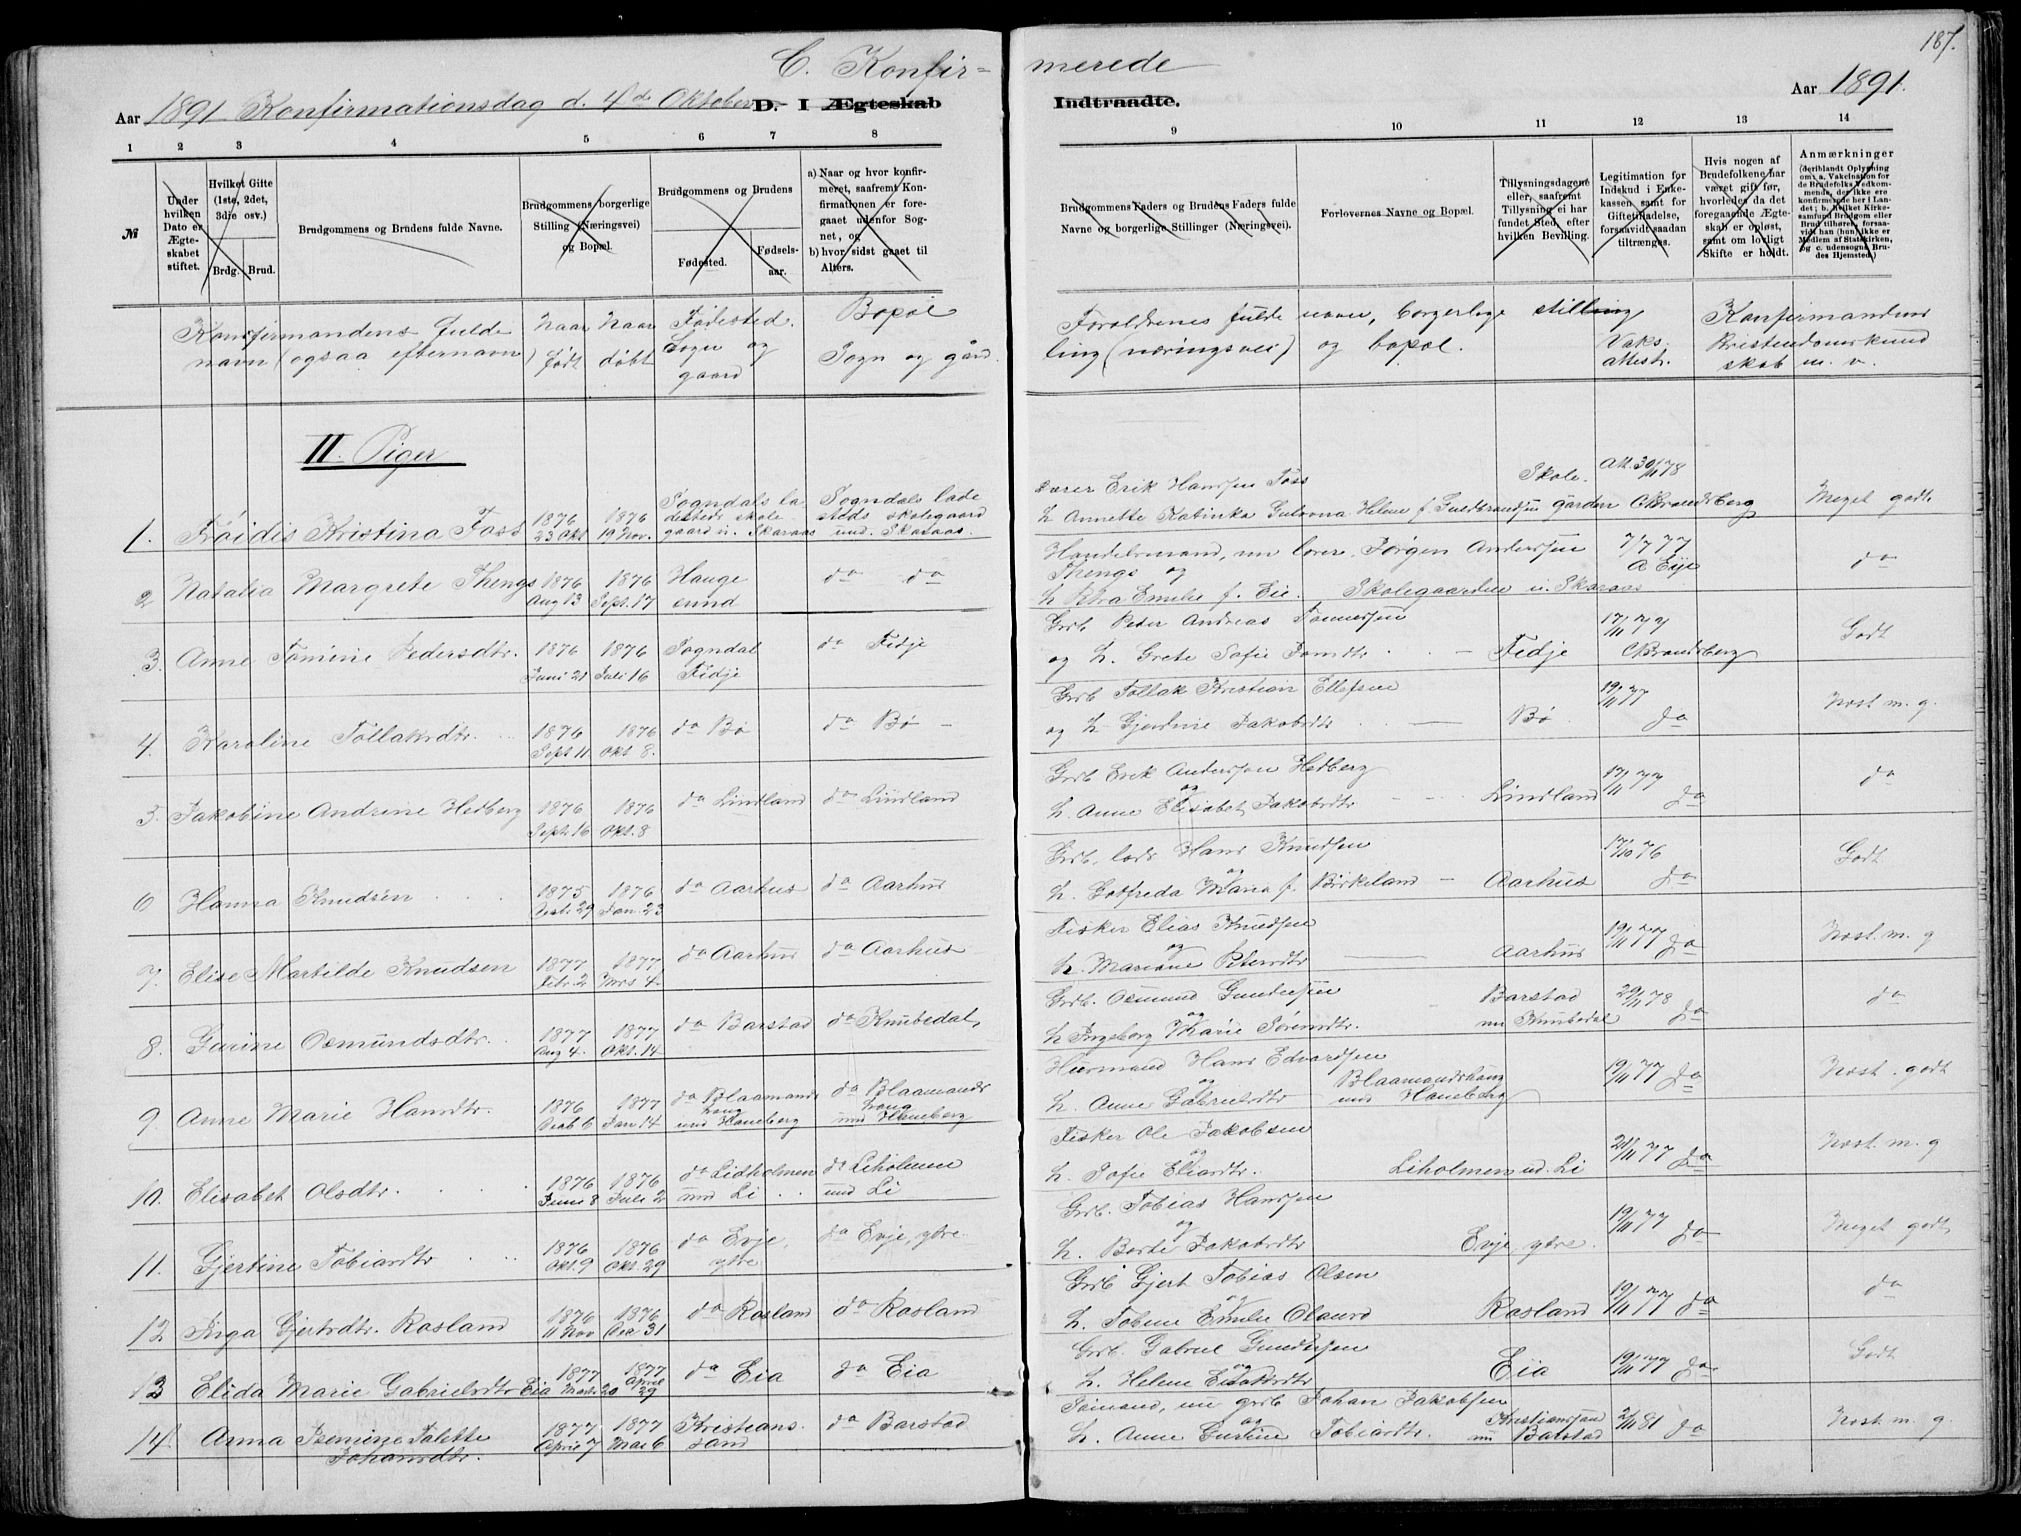 187.
C. Konfir-
merede
Aar 1891 Konfirmationsdag d. 4de Oktober D. I Ægteskab
Indtraadte. Aar 1891.
1 2 3 4 5 6 7 8
9 10 11 12 13 14
№
Under hvilken Dato er Ægteskabet stiftet.
Hvilket Gifte (1ste, 2det, 3die osv.)
Brdg. Brud.
Brudgommens og Brudens fulde Navne.
Brudgommens borgerlige Stilling (Næringsvei) og Bopæl.
Brudgommens og Brudens
Fødested. Fødselsaar.
a) Naar og hvor konfirmeret, saafremt Konfirmationen er foregaaet udenfor Sognet, og
b) hvor sidst gaaet til Alters.
Brudgommens Faders og Brudens Faders fulde Navne og borgerlige Stillinger (Næringsvei).
Forlovernes Navne og Bopæl.
Tillysningsdagene eller, saafremt Tillysning ei har fundet Sted, efter hvilken Bevilling.
Legitimation for Indskud i Enkekassen samt for Giftetilladelse, forsaavidt saadan tiltrænges.
Hvis nogen af Brudefolkene har været gift før, hvorledes da det foregaaende Ægteskab er opløst, samt om lovligt Skifte er holdt.
Anmærkninger
(deriblandt Oplysning om: a. Vakcination for de Brudefolks Vedkommende, der ikke ere konfirmerede her i Landet; b. hvilket Kirkesamfund Brudgom eller Brud tilhører, forsaavidt han (hun) ikke er Medlem af Statskirken, og c. udensogns Brudes Hjemsted.)
Konfirmandens fulde navn (ogsaa efternavn)
Naar født
Naar døbt
Fødested. Sogn og gaard
Bopæl Sogn og gård.
Forældrenes fulde navn, borgerlige stilling (næringsvei) og bopæl.
Vaks. attest.
Konfirmandens Kristendomskundskab m. v.
II. Piger
1. Fröidis Kristina Foss 1876 23 Okt 1876 19 Nov. Sogndals ladesteds skolegaard u. Skaraas Sogndals ladesteds skolegaard und. Skaraas.
Lærer Erik Hansen Foss Skole- Att. 30/11 78
h. Annette Katinka Gulovna Helene f. Guldbrandsen gården CBrandsberg Meget godt.
2 Natalia Margrete Thengs 1876 Aug 13 1876 Sept. 17 Haugesund do do
Handelsmand, nu lærer Jørgen Andersen Thengs og 7/7 77 A Eije do
Emilie f. Eie. Skolegaarden u. Skaraas
3. Anne Tomine Pedersdtr. 1876 Juni 21 1876 Juli 16 Sogndal Fidje do Fidje
Grb Peter Andreas Tønnessen
og h. Grete Sofie Fidje CBrandsberg Godt
4. Karoline Tollaksdtr. 1876 Sept 11 1876 Okt 8. do Bø do Bø
Grb Tollak Kristian Ellefsen
og h. Gjertine Jakobsdtr Bø 19/11 77 do Nost m. g.
5. Jakobine Andrine Hedberg 1876 Sept. 16 1876 Okt. 8 do Lindland do Lindland
Grb Erik Anderssen Hedberg og
h. Anne Elisabet Jakobsdtr Lindland 17/11 77 do do
6 Hanna Knudsen 1875 Decbr. 29 1876 Jan. 23 do Aarhus do Aarhus
Grb. lods Hans Knudsen og
h. Gotfreda Maria f. Birkeland Aarhus 17/10 76 do Godt
7. Elise Martilde Knudsen 1877 Febr. 2 1877 Mrs 4. do Aarhus do Aarhus
Fisker Elias Knudsen og
h. Mariane Petersdtr Aarhus 19/11 77 do Nost. m. g
8. Gurine Osmundsdtr. 1877 Aug 4. 1877 Okt. 14 do Barstad do Knubedal
Grb. Osmund Gundersen og
h. Ingeborg Marie Sørensdtr. Barstad nu Knubedal 29/11 78 do do
9. Anne Marie Hansdtr. 1876 Decb 6 1877 Jan 14 do Blaamandshaug und Haneberg do Blaamandshaug und Haneberg
Husmand Hans Edvardsen og
h. Anne Gabrielsdtr Blaamandshaug und Haneberg 19/11 77 do Nost. godt
10. Elisabet Olsdtr. 1876 Juni 8 1876 Juli 2 do Lidholmen und Li do Liholmen und Li
Fisker Ole Jakobsen og
h. Sofie Eliasdtr. Liholmen ud. Li 21/11 77 do Nost. m. g
11. Gjertine Tobiasdtr 1876 Okt. 9 1876 Okt. 29 do Evje ytre do Evje, ytre
Grb. Tobias Hanssen og
h. Berte Jakobsdtr Evje, ytre. 19/11 77 do Meget godt
12 Inga Gjertsdtr. Rosland 1876 11 Nov 1876 Dec 31 do Rosland do Rosland
Grb. Gjert Tobias Olsen og
h. Tobine Emilie Olausd Rosland 19/11 77 do do
13 Elida Marie Gabrielsdtr Eia 1877 Marts 20 1877 April 29 do Eia do Eia
Grb. Gabriel Gundersen og
h. Helene Eisaksdtr Eia 19/11 77 do Godt
14. Anna Isemine Talette Johansdtr. 1877 April 7 1877 Mai 6 Kristianssand do Barstad
Sømand, nu grb Johan Jakobsen og
h. Anne Gurine Tobiasdtr. Kristianssand nu Barstad 2/11 81 do Nost m. g